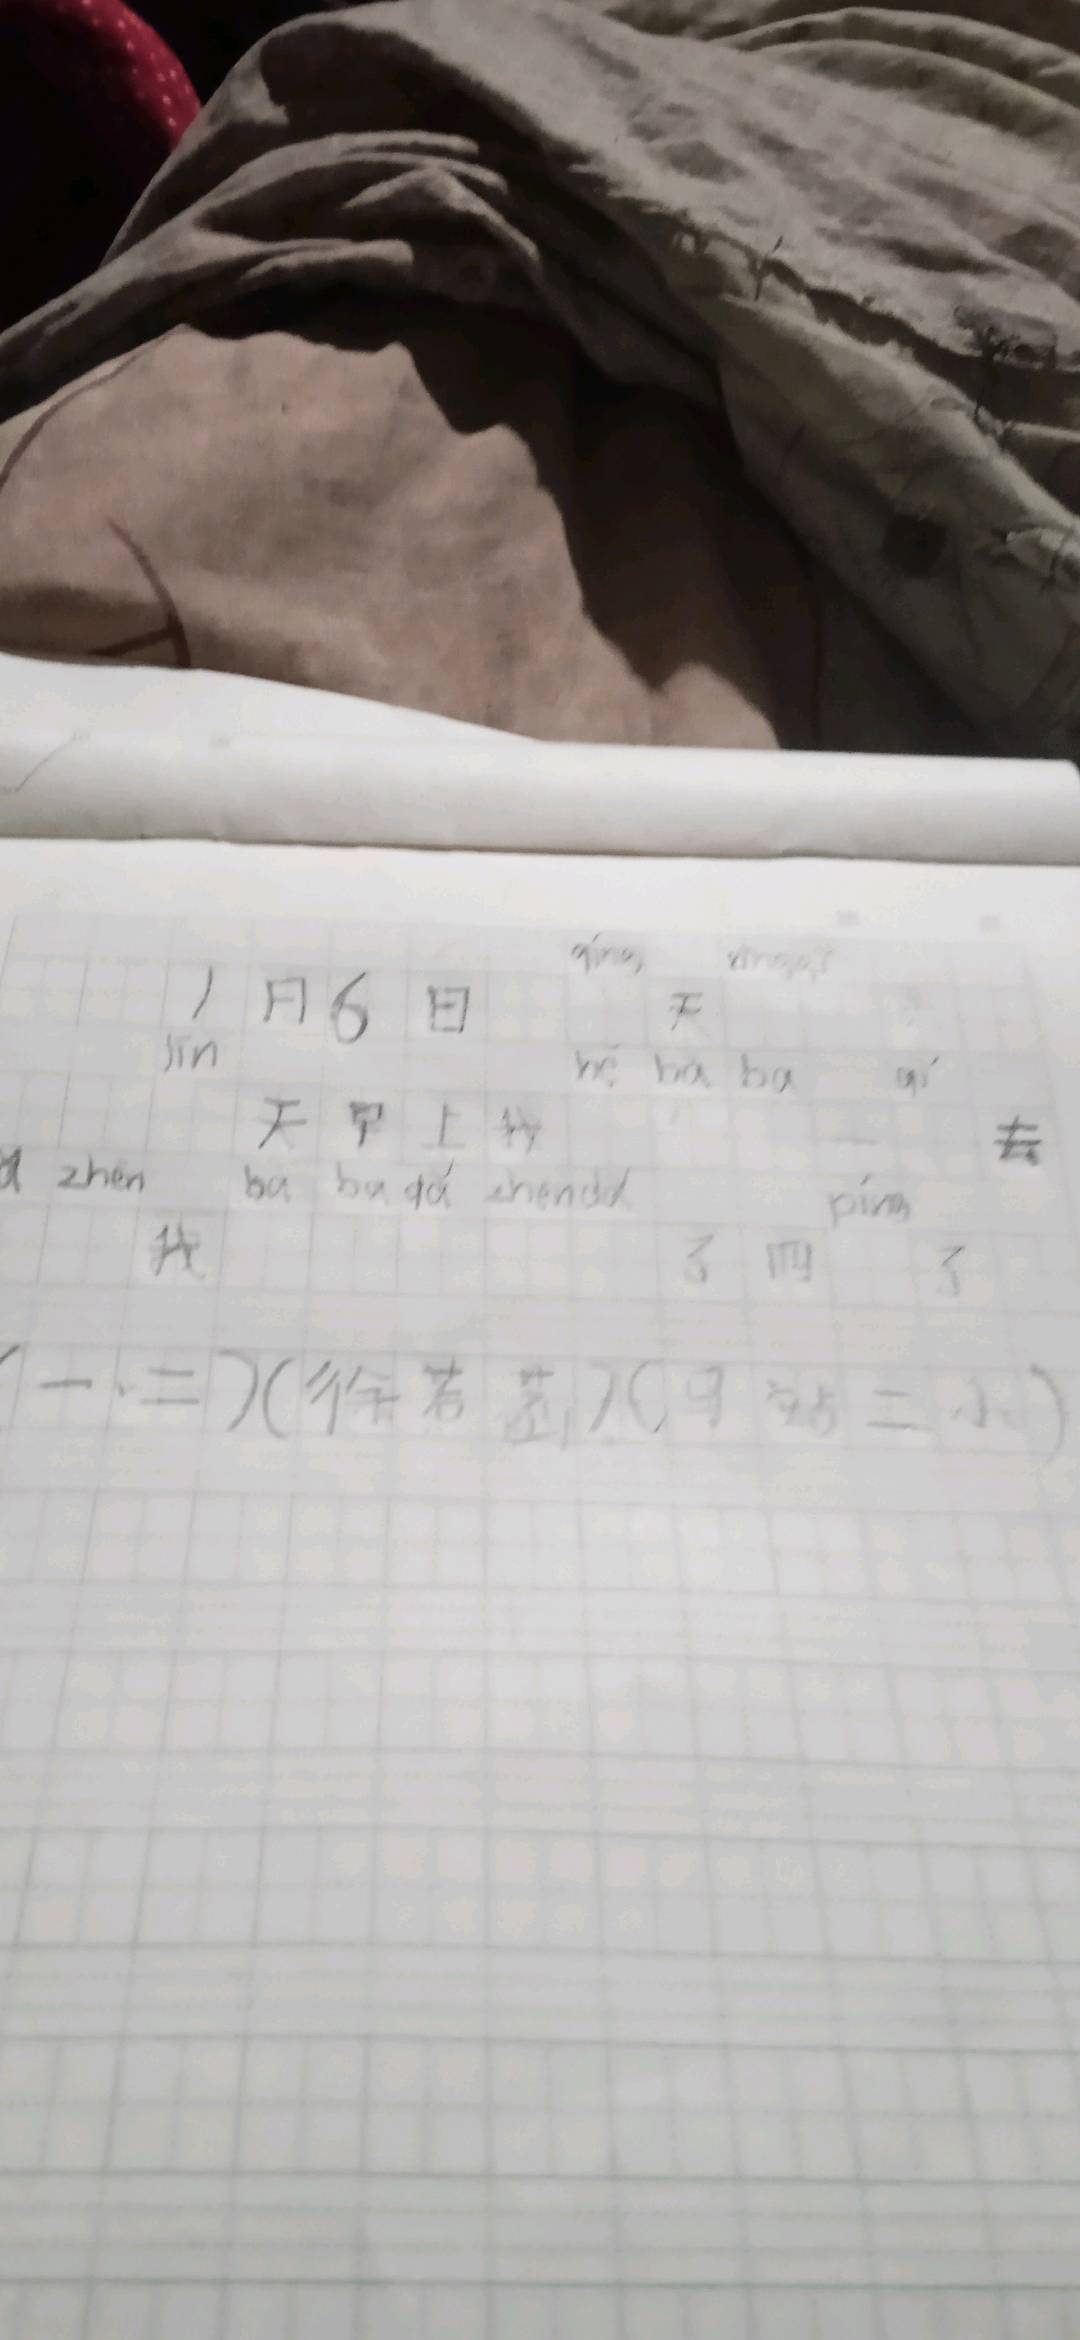 qíng
1月6日 天
jīn hé bà ba qi
天早上我 一 去
dǎ zhēn bà ba dǎ zhēn dǎ píng
我 了四 了
(一、二)(徐若 )( 站二小)